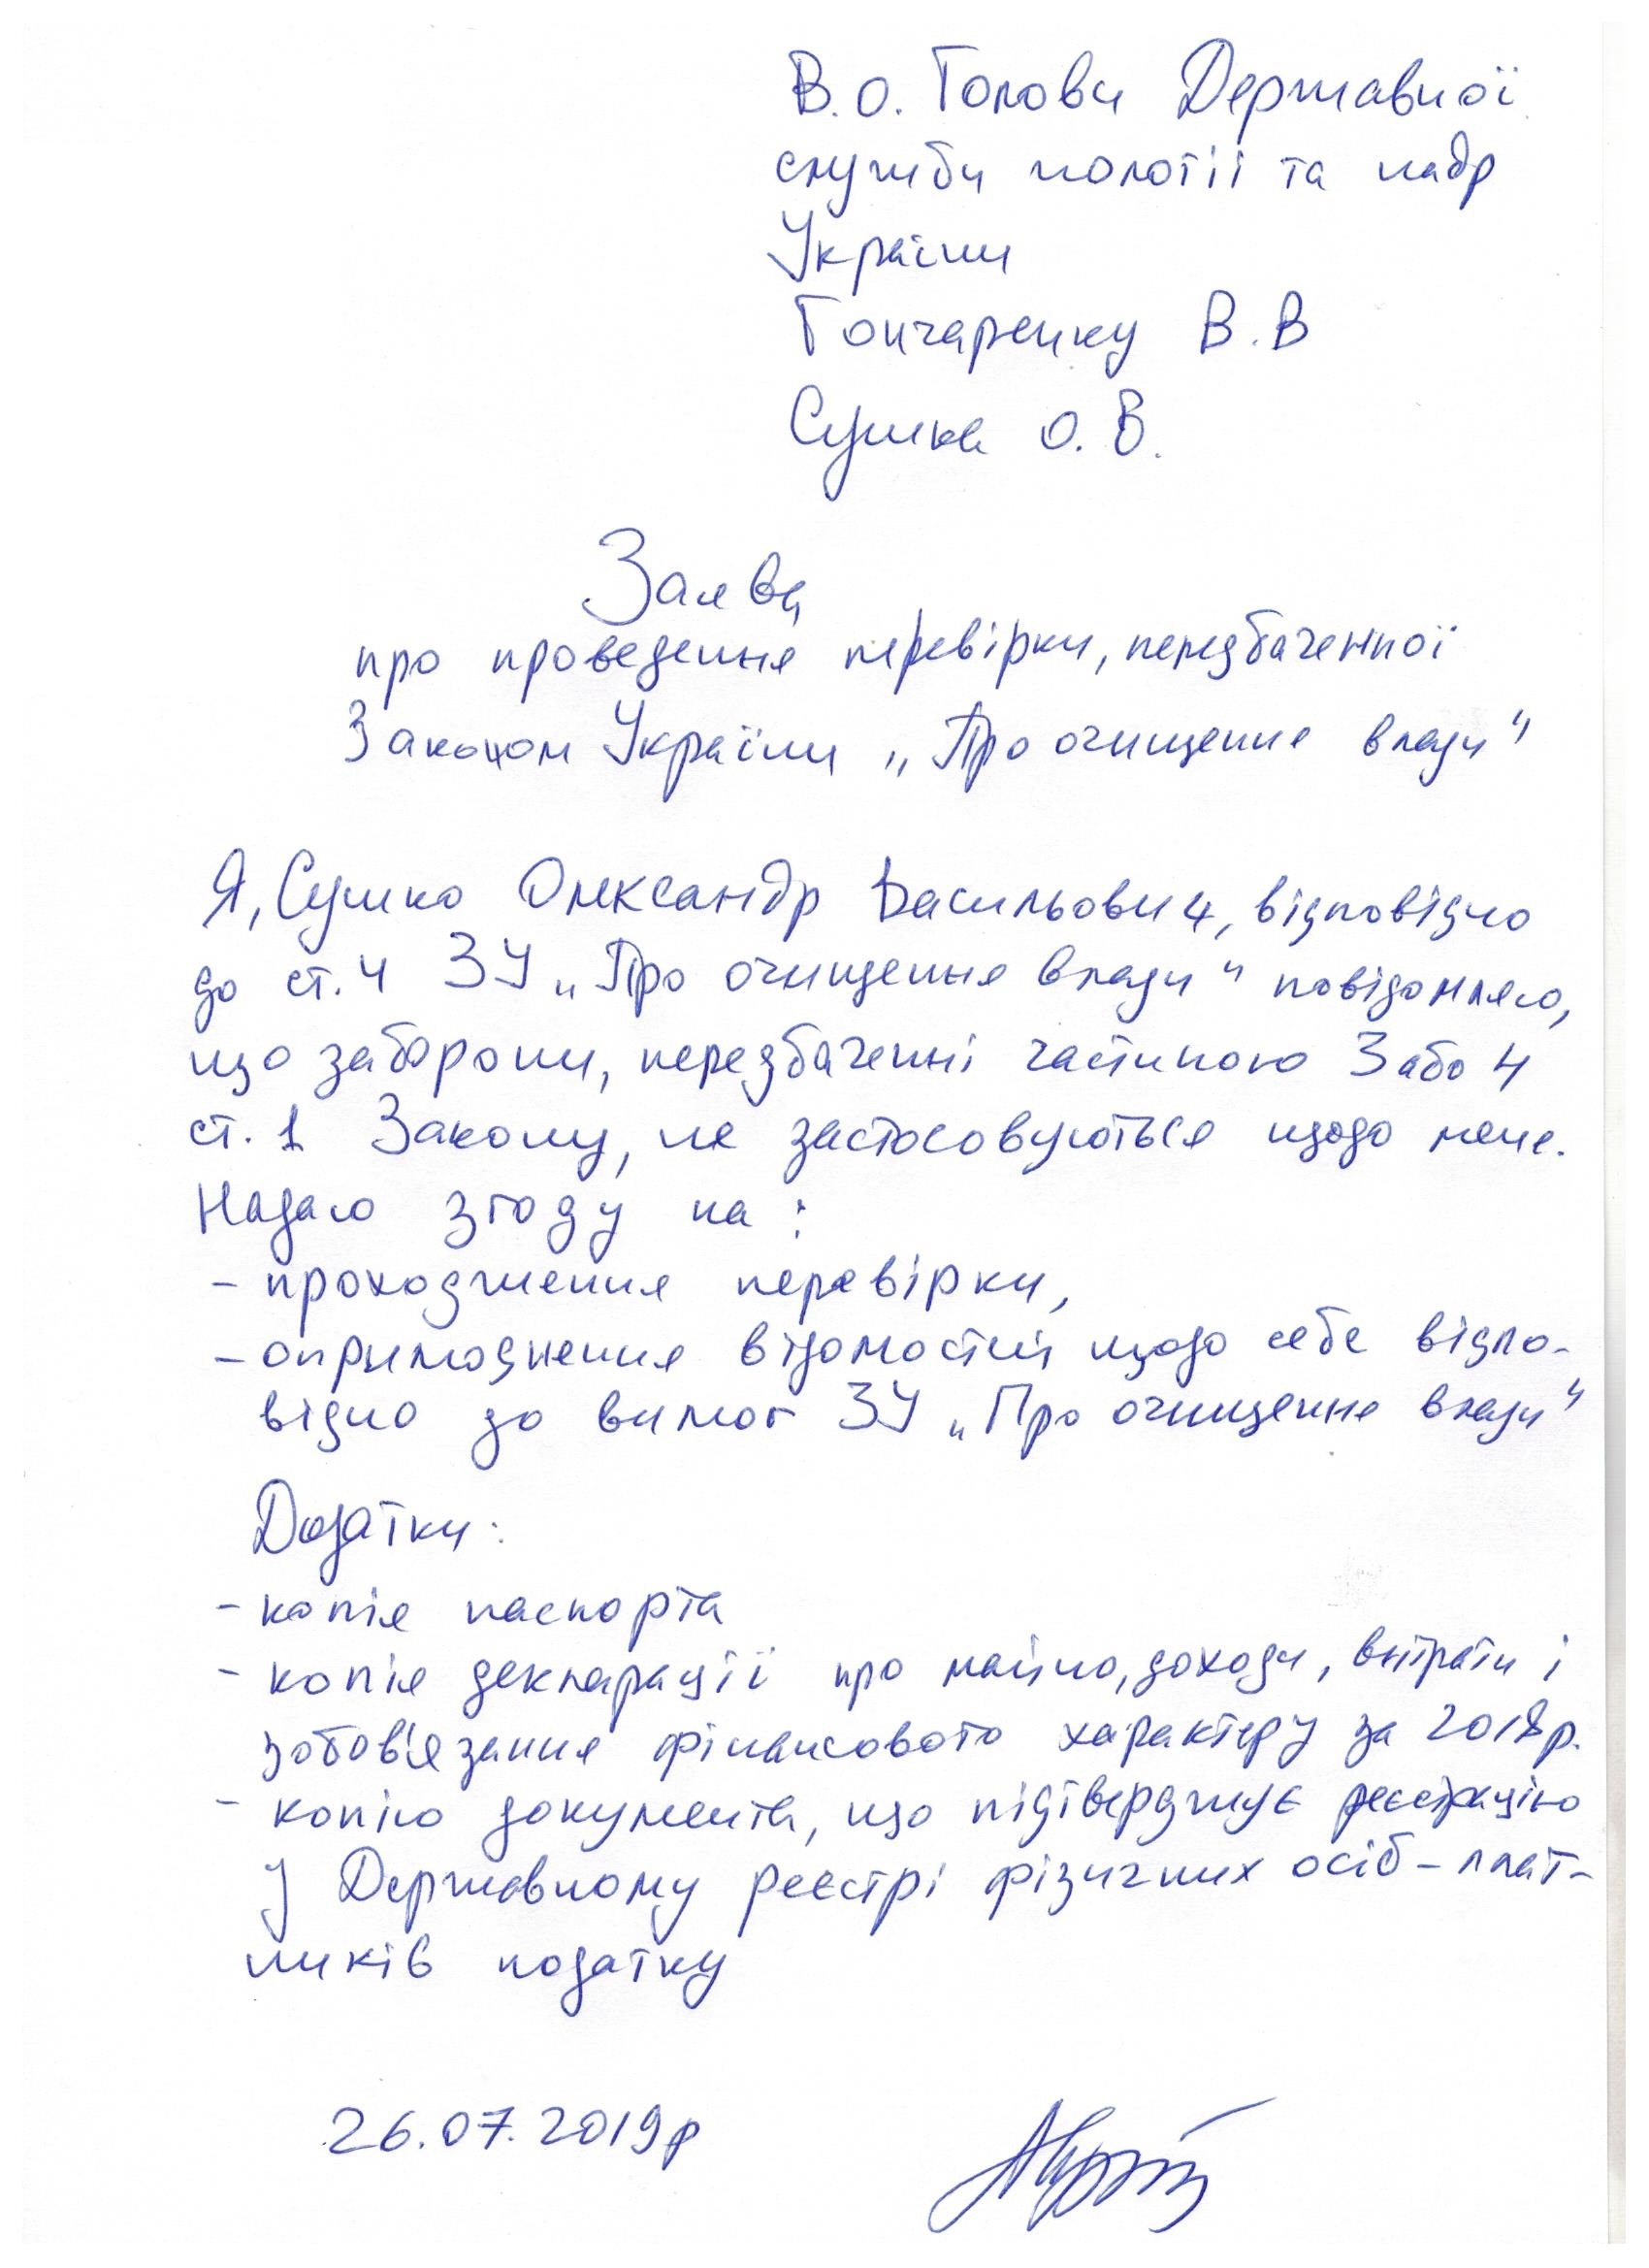 В.о. Голови Державної
служби геології та надр
України
Гончаренку В.В
Сушка О.В.
Заява
про проведення перевірки, передбаченної
Законом України „Про очищення влади"
Я, Сушко Олександр Васильович, відповідно
до ст. 4 ЗУ „Про очищення влади" повідомляю,
що заборони, передбаченні частиною 3 або 4
ст. 1 Закону, не застосовуються щодо мене.
Надаю згоду на:
- проходження перевірки,
- оприлюднення відомостей щодо себе відпо-
відно до вимог ЗУ „Про очищення влади"
Додатки:
- копія паспорта
- копія декларації про майно, доходи, витрати і
зобов'язання фінансового характеру за 2018р.
- копію документа, що підтверджує реєстрацію
у Державному реєстрі фізичних осіб-плат-
ників податку
26.07.2019р